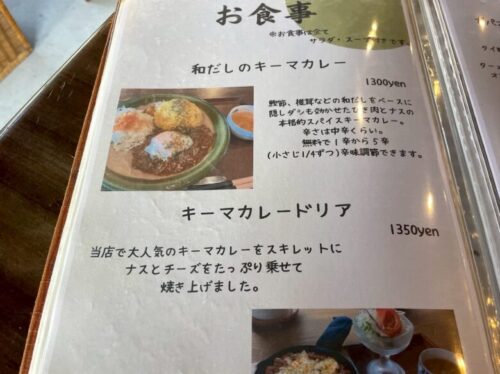 お食事
※お食事は全て
サラダ・スープ付きです
和だしのキーマカレー
1300yen
鰹節、椎茸などの和だしをベースに
隠しダシも効かせたひき肉とナスの
本格的スパイスキーマカレー。
辛さは中辛くらい。
無料で1辛から5辛
(小さじ1/4ずつ)辛味調節できます。
キーマカレードリア
1350yen
当店で大人気のキーマカレーをスキレットに
ナスとチーズをたっぷり乗せて
焼き上げました。